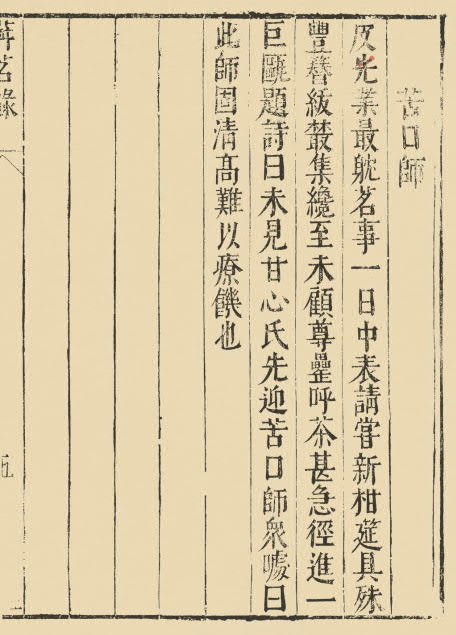 苦口師
皮光業最躭茗事一日中表請嘗新柑筵具殊
豐簪紱叢集纔至未顧尊罍呼茶甚急徑進一
巨甌題詩曰未見甘心氏先迎苦口師衆噱曰
此師固清高難以療饑也
荈茗錄
五